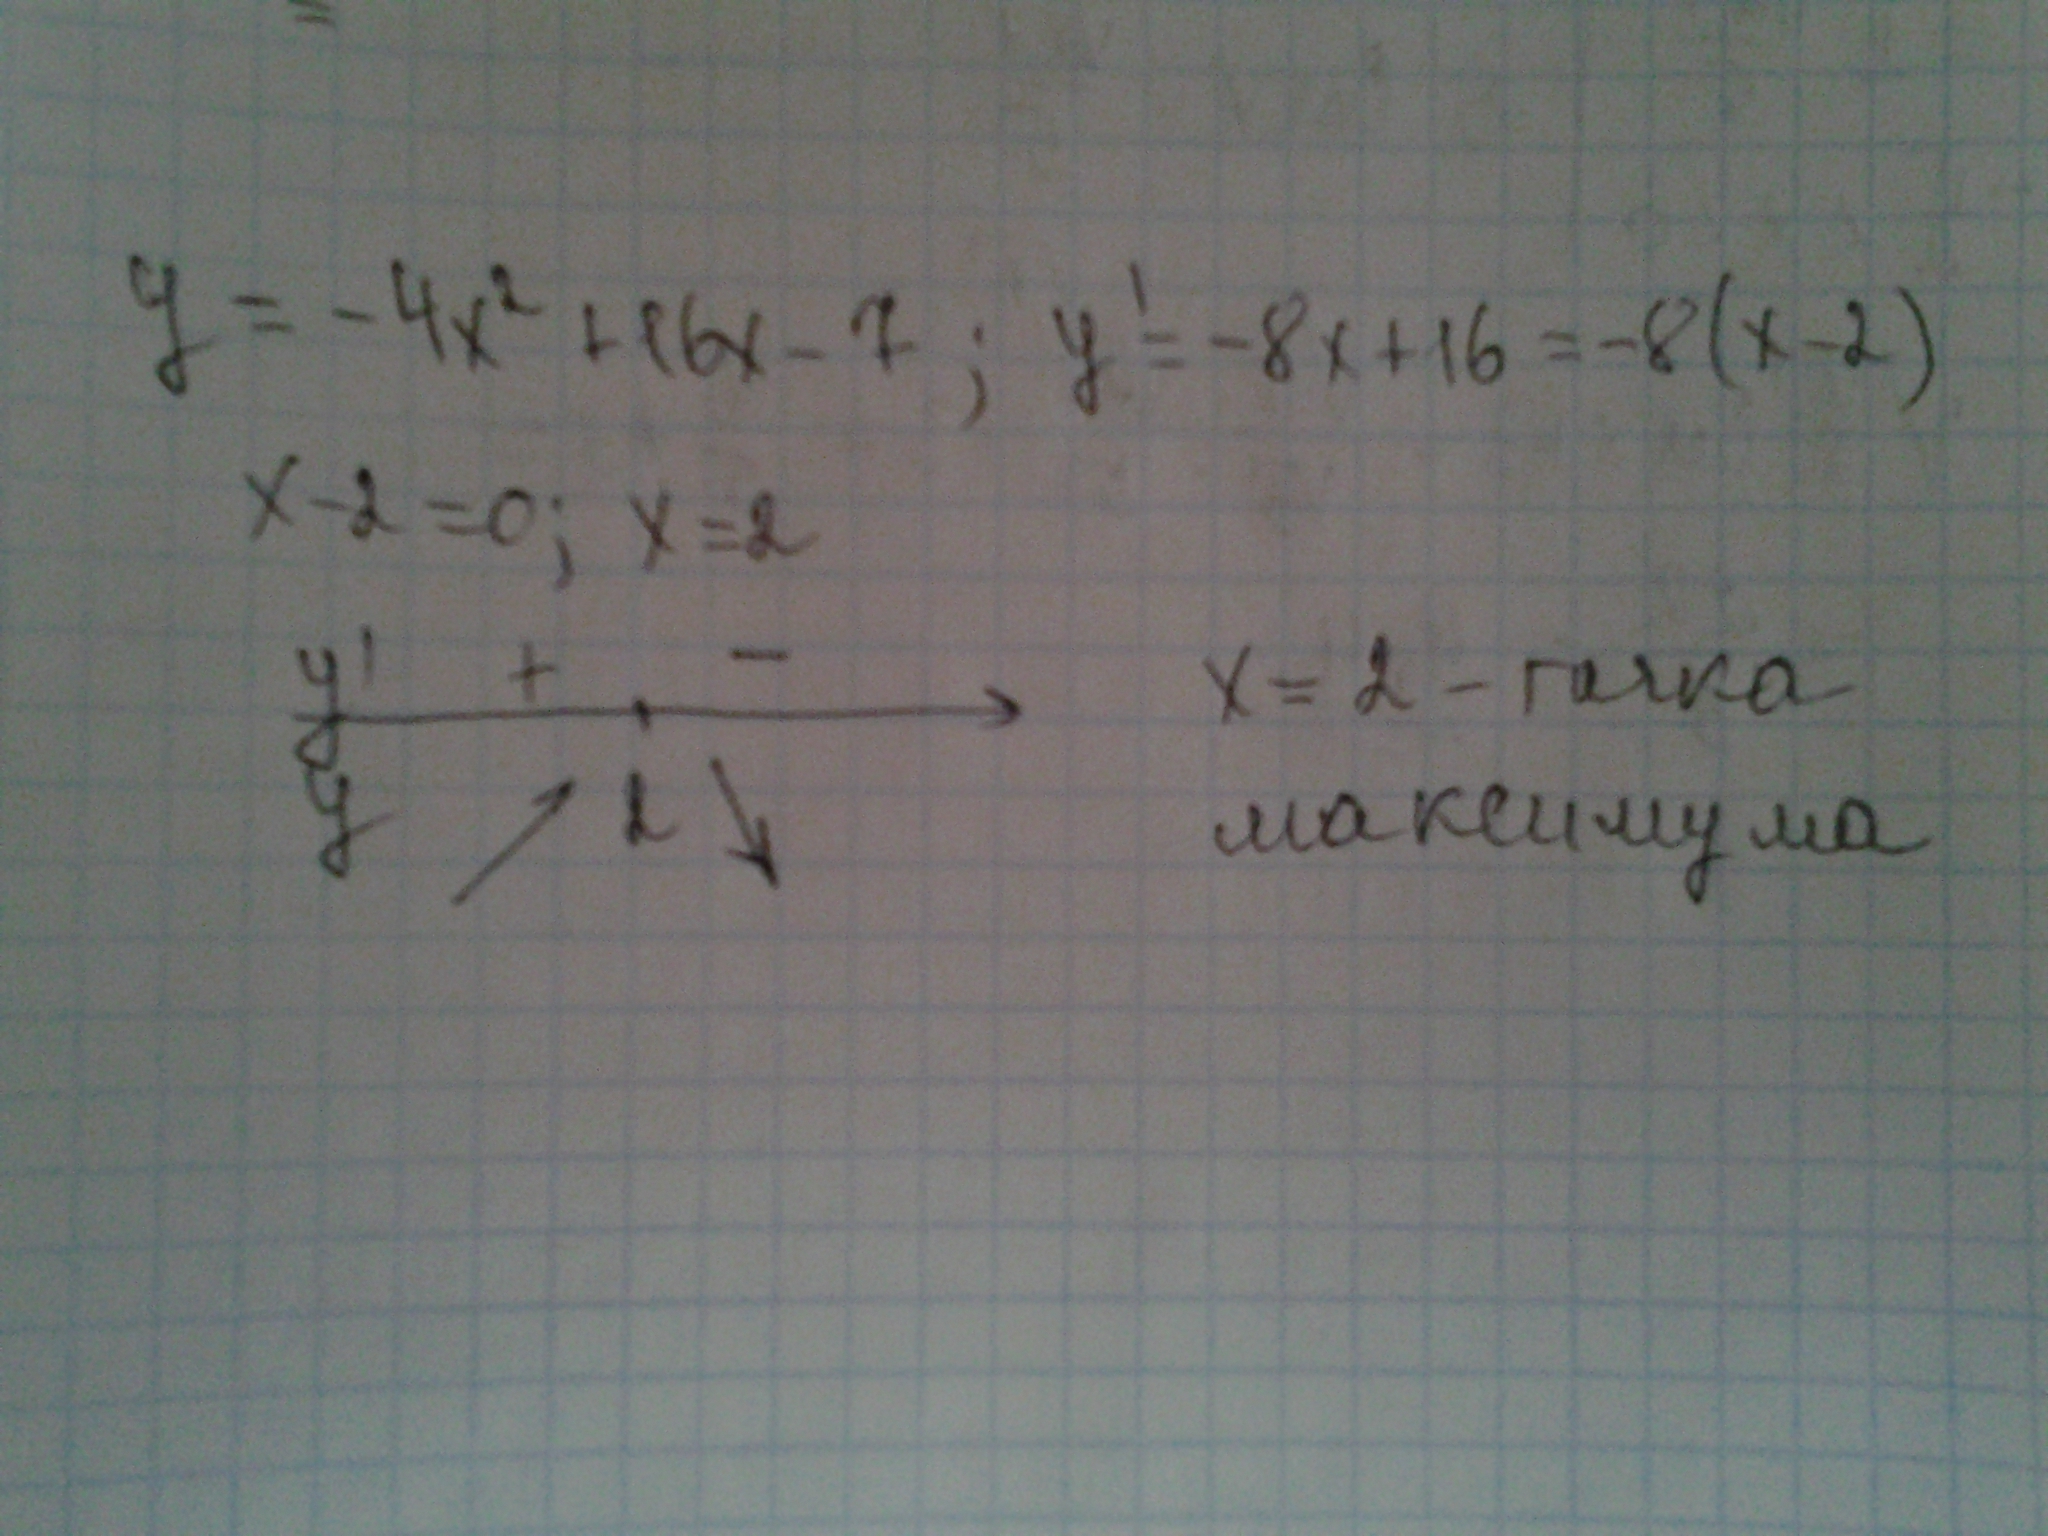 y = -4x² + 16x - 7 ; y' = -8x + 16 = -8(x-2)
x - 2 = 0; x = 2
y' + -
x = 2 - точка
y 2
максимума